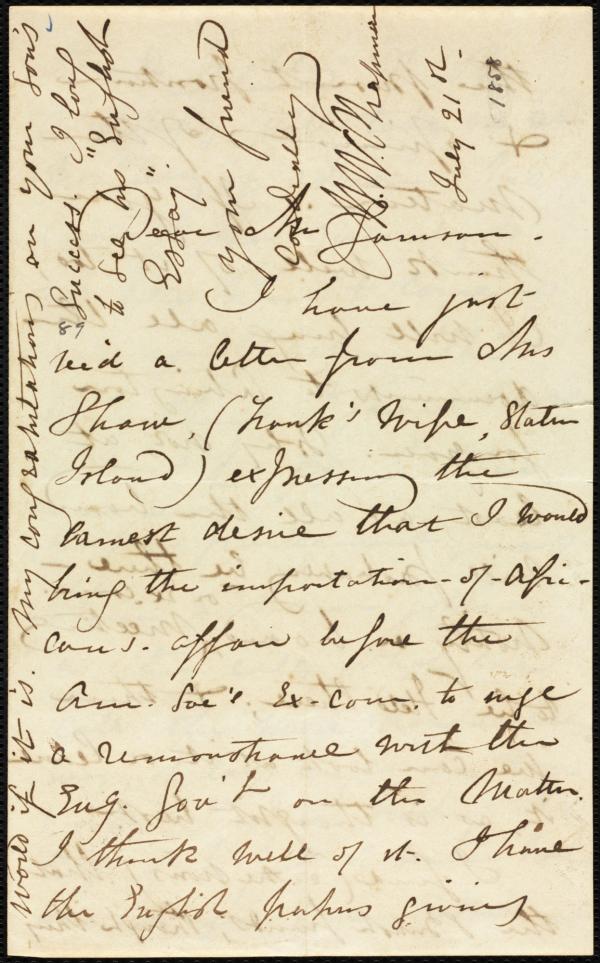 Dear Mr Garrison.
I have just
rec'd a letter from Mrs
Shaw, (Frank's wife, Staten
Island) expressing the
earnest desire that I would
bring the importation-of-Afri-
cans-affair before the
Am. Soc's Ex-com. to urge
a remonstrance with the
Eng. Gov't on the matter.
I think well of it. I have
the English papers giving
would if it is. My congratulations on your Son's
success. I long
to see his "English
Essay".
your friend
cordially
M. W. Chapman
July 21st.
1858
89